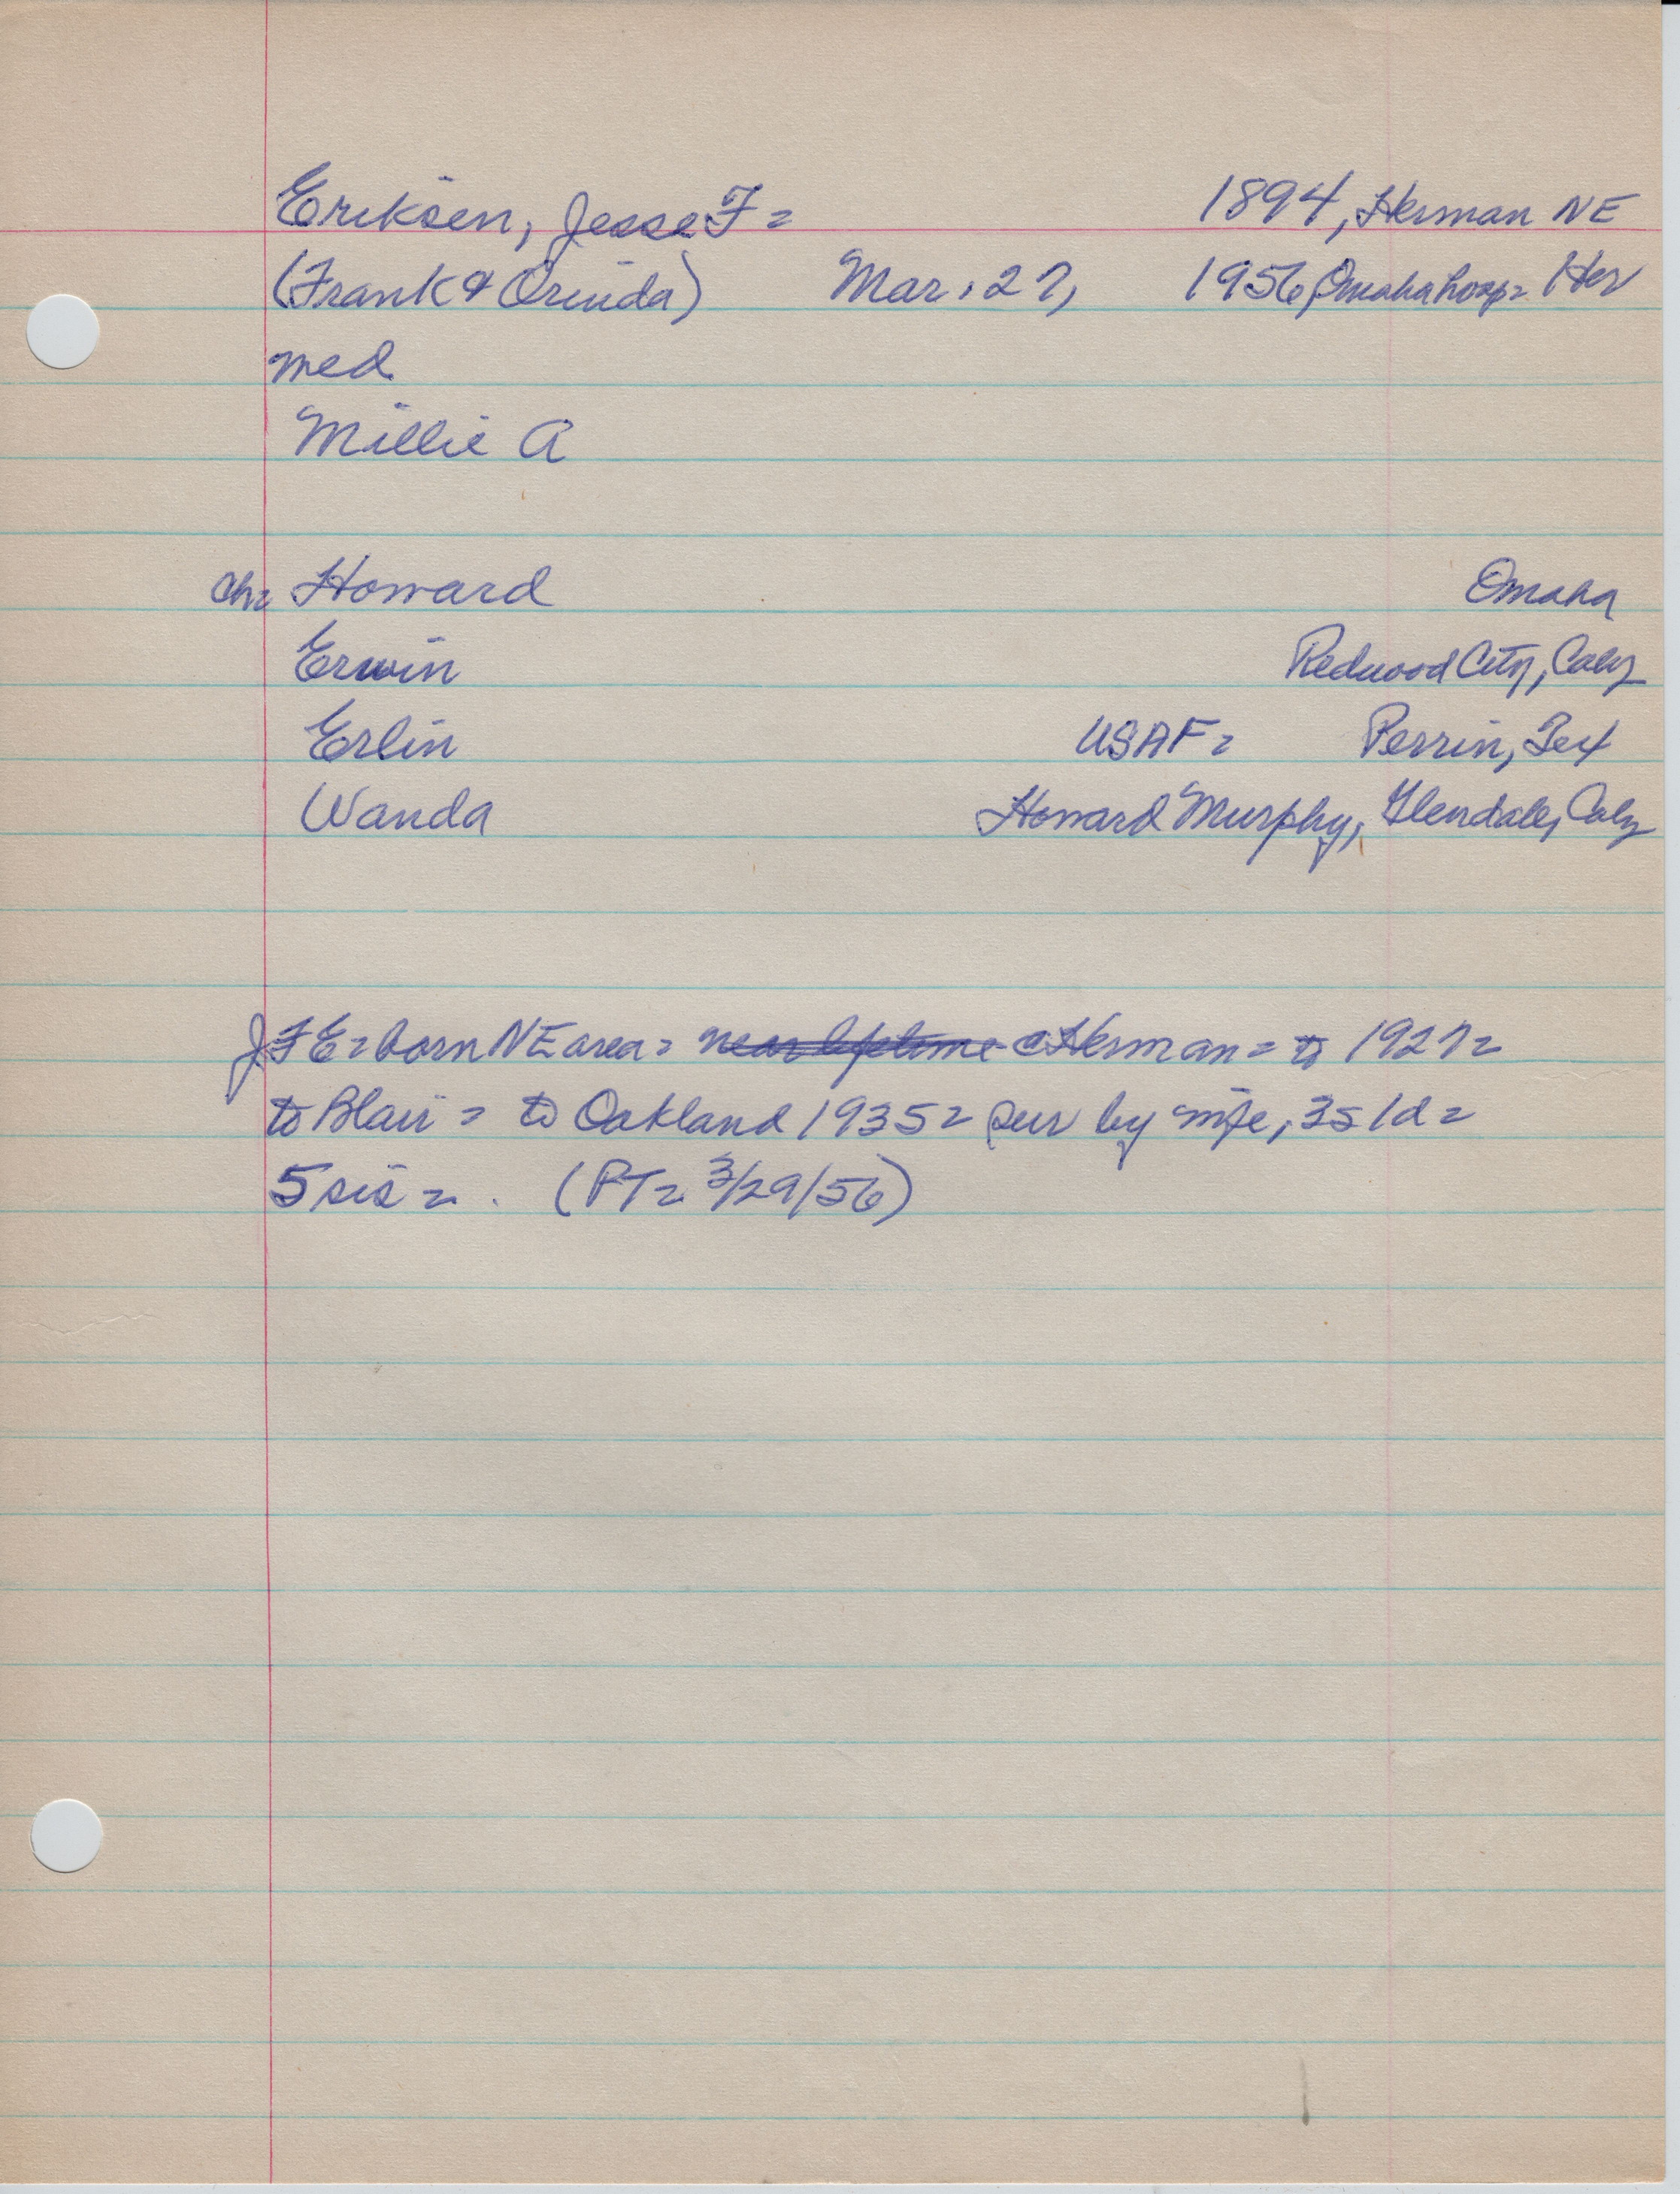 Eriksen, Jesse F = 1894, Herman NE
(Frank & Orinda) Mar. 27, 1956, Omaha hosp = Her
med
Millie A
ch = Howard Omaha
Erwin Redwood City, Calif
Erlin USAF = Perrin, Tex
Wanda Howard Murphy, Glendale, Calif
JFE = born NE area = near lifetime Herman = to 1927 =
to Blair = to Oakland 1935 = sur by wife, 3s 1d =
5 sis = . (PT = 3/29/56)